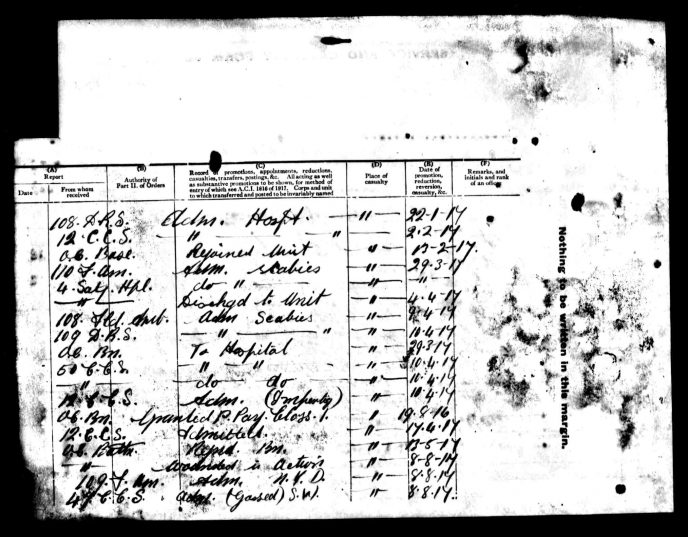 (A) Report
(B) Authority of Part II. of Orders
(C) Record of promotions, appointments, reductions, casualties, transfers, postings, &c. All acting as well as substantive promotions to be shown, for method of entry of which see A.C.I. 1816 of 1917. Corps and unit to which transferred and posted to be invariably named
(D) Place of casualty
(E) Date of promotion, reduction, reversion, casualty, &c.
(F) Remarks, and initials and rank of an officer
Date From whom received
108. D.R.S. Adm. Hospt. — " — 22-1-17
12. C.C.S. " " " 2-2-17
O.C. Base. Rejoined Unit " 13-2-17.
110 F. Am. Adm. Scabies " 29.3.17
4. Saty. Hpl. do " " — " —
— " — Dischgd to Unit " 4.4.17
108. Fld. Amb. Adm Scabies " .4.17
109 D.R.S. — " — " " 10.4.17
O.C. Bn. To Hospital " 29.3.17
50 C.C.S. — " — " " 10.4.17
— " — do do " 10.4.17
12. C.C.S. Adm. (Impetigo) " 10.4.17
O.C. Bn. Granted P. Pay. Class. 1. " 19.8.16
12. C.C.S. Admitted. " 17.4.17
O.C. Battn. Rejnd. Bn. " 13-5-17
— " — Wounded in Action " 8-8-17
109. F. Am. Adm. N.Y.D. " 8.8.17
47 C.C.S. Adm. (Gassed) S.W. " 8.8.17.
Nothing to be written in this margin.